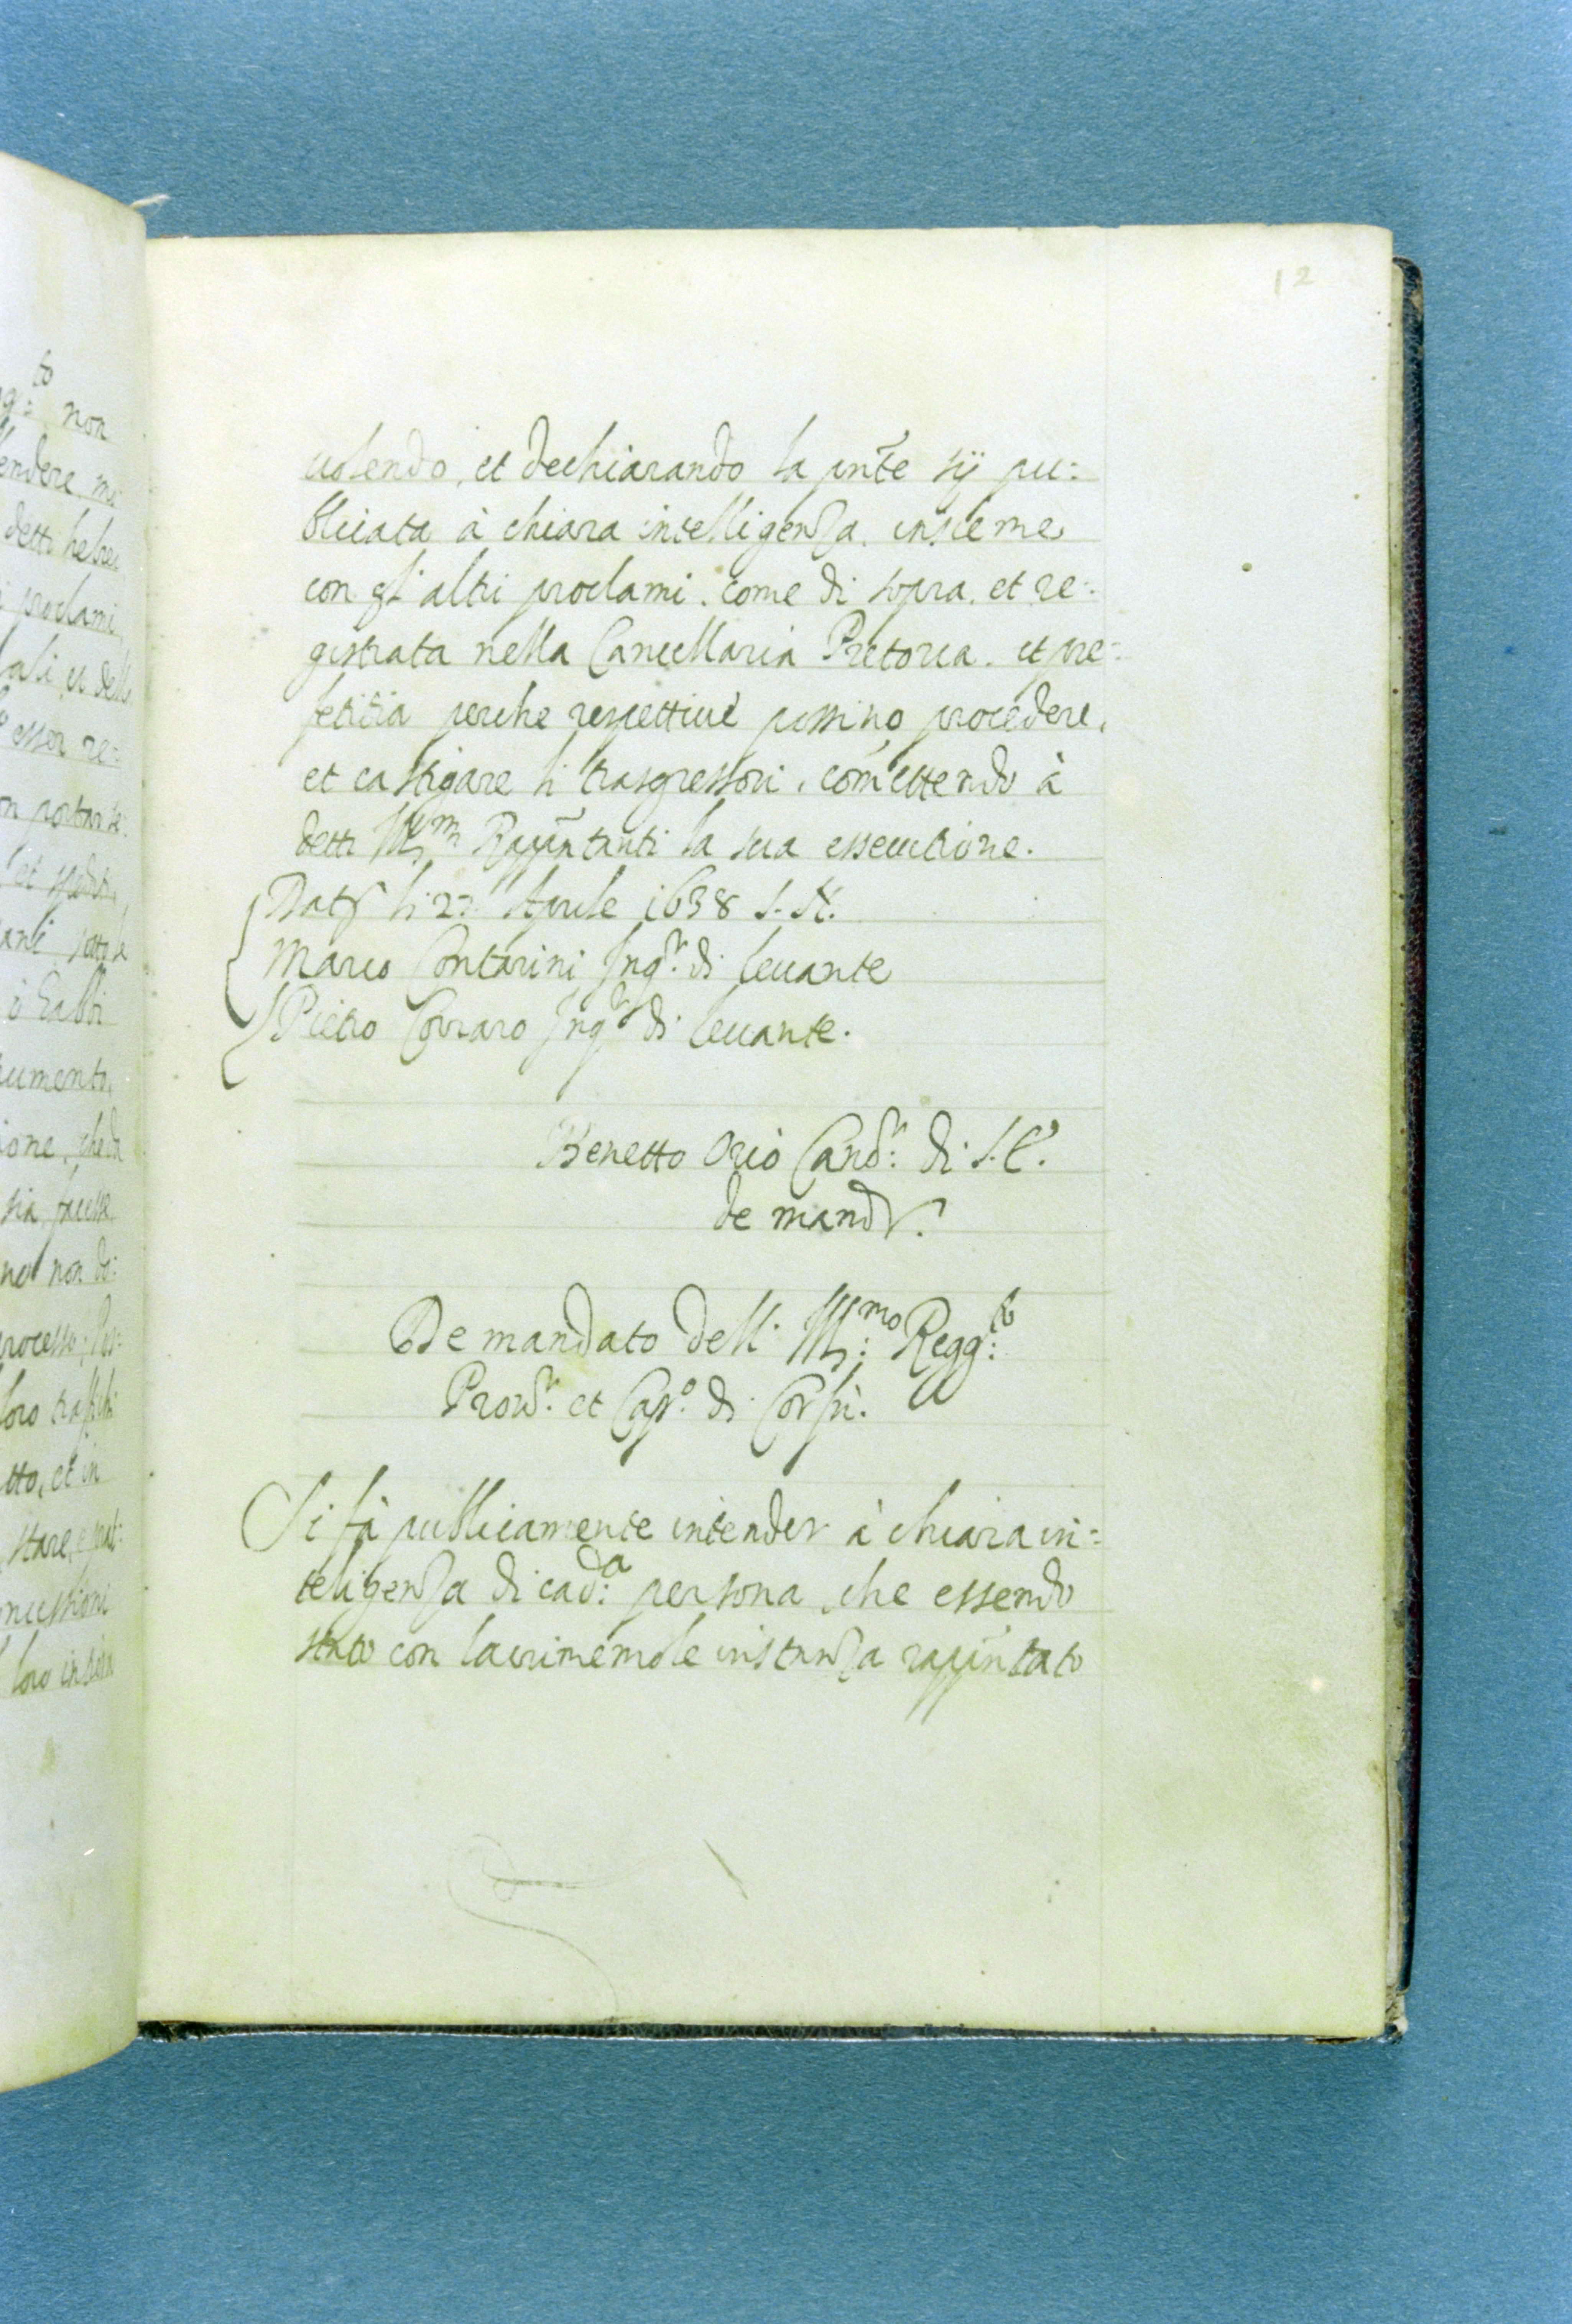 12
uolendo, et dechiarando la pnte sij pu:
bliciata à chiara intelligenza insieme
con gl'altri proclami. come di sopra. et re:
gistrata nella Cancellaria Pretorea. et pre:
fetitia perche respettiue possino procedere,
et castigare li trasgressori, comettendo à
detti Ill:mi Rappntanti la sua essecutione.
Dat li 22 Aprile 1638 S. N.
Marco Contarini Inqr: di leuante
Pietro Corraro Inqr di leuante.
Benetto Orio Candr: di S. E.
de mandto.
De mandato dell' Ill:mo Regg:to
Prour: et Capo: di Corfù.
Si fà publicamente intender à chiara in:
teligenza di cad:a persona, che essendo
stato con lacrimemole instanza rappntato